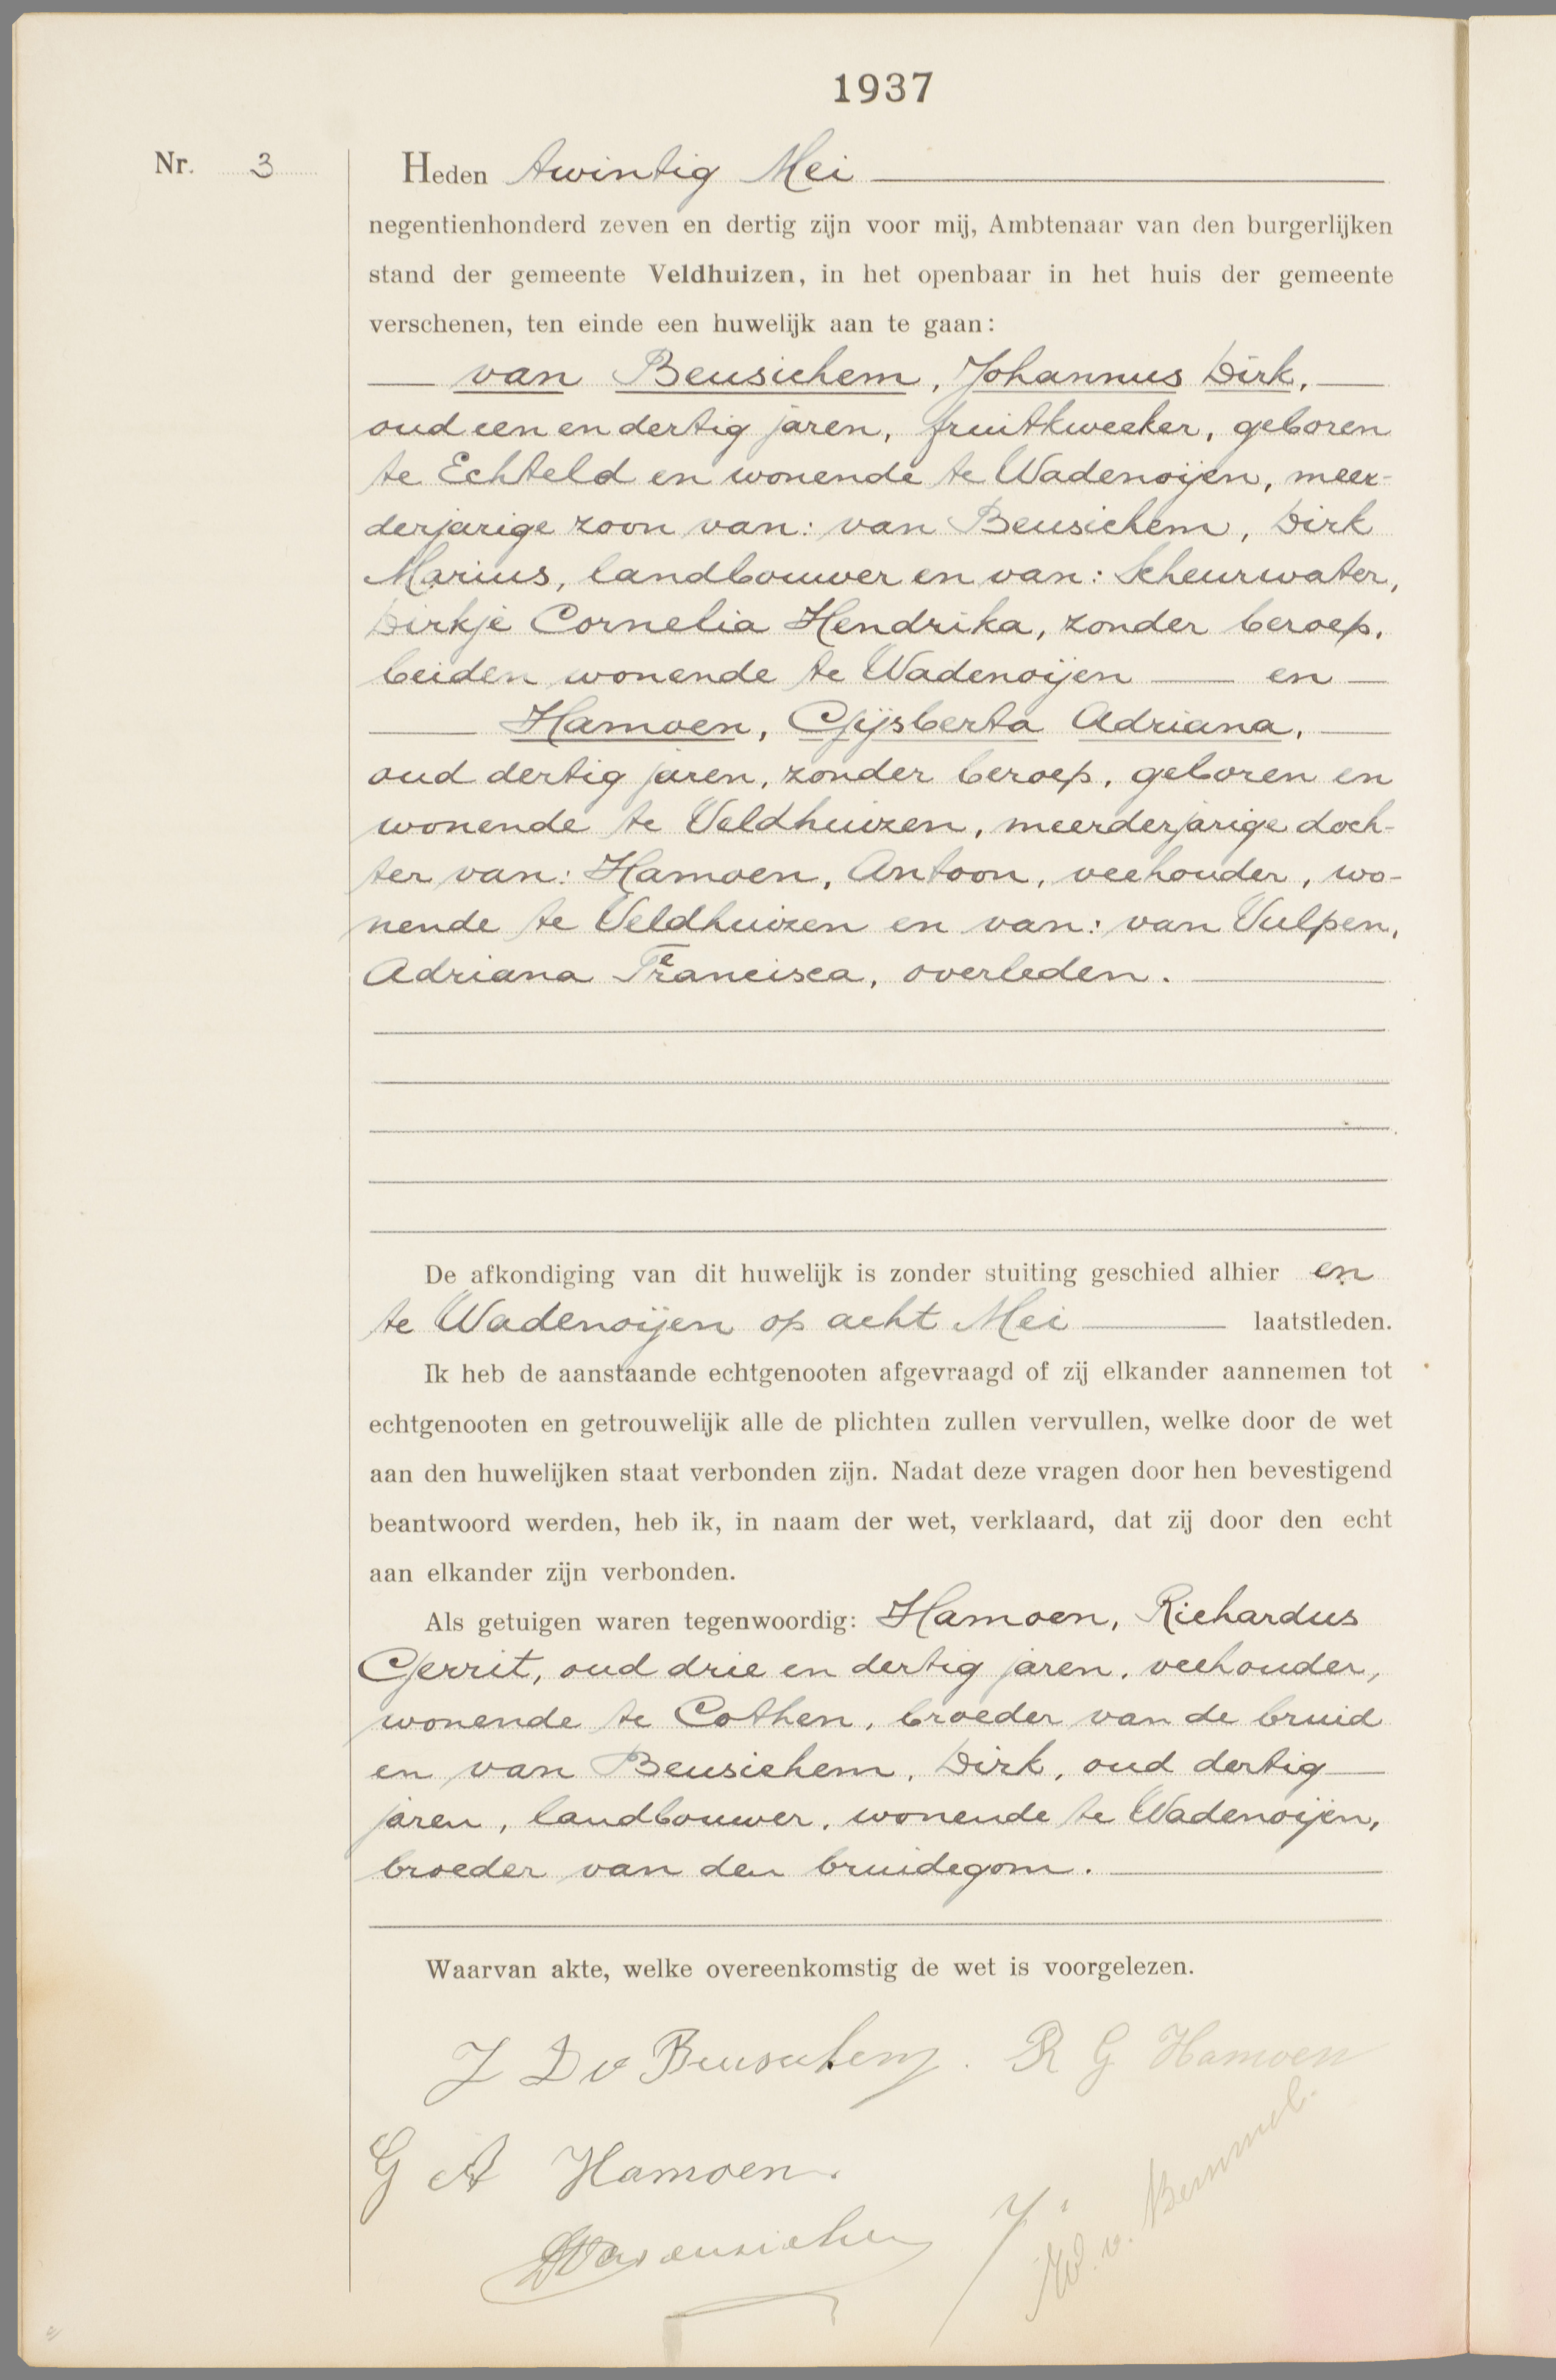 1937
Nr. 3
Heden twintig Mei
negentienhonderd zeven en dertig zijn voor mij, Ambtenaar van den burgerlijken
stand der gemeente Veldhuizen, in het openbaar in het huis der gemeente
verschenen, ten einde een huwelijk aan te gaan:
van Beusichem, Johannus Dirk,
oud een en dertig jaren, fruitkweeker, geboren
te Echteld en wonende te Wadenoijen, meer-
derjarige zoon van: van Beusichem, Dirk
Marius, landbouwer en van: Scheurwater,
Dirkje Cornelia Hendrika, zonder beroep,
beiden wonende te Wadenoijen en
Hamoen, Gijsberta Adriana,
oud dertig jaren, zonder beroep, geboren en
wonende te Veldhuizen, meerderjarige doch-
ter van: Hamoen, Antoon, veehouder, wo-
nende te Veldhuizen en van: van Vulpen,
Adriana Francisca, overleden.
De afkondiging van dit huwelijk is zonder stuiting geschied alhier en
te Wadenoijen op acht Mei laatstleden.
Ik heb de aanstaande echtgenooten afgevraagd of zij elkander aannemen tot
echtgenooten en getrouwelijk alle de plichten zullen vervullen, welke door de wet
aan den huwelijken staat verbonden zijn. Nadat deze vragen door hen bevestigend
beantwoord werden, heb ik, in naam der wet, verklaard, dat zij door den echt
aan elkander zijn verbonden.
Als getuigen waren tegenwoordig: Hamoen, Richardus
Gerrit, oud drie en dertig jaren, veehouder,
wonende te Cothen, broeder van de bruid
en van Beusichem, Dirk, oud dertig
jaren, landbouwer, wonende te Wadenoijen,
broeder van den bruidegom.
Waarvan akte, welke overeenkomstig de wet is voorgelezen.
J D v Beusichem. R G Hamoen
G A Hamoen.
v. Bemmel.